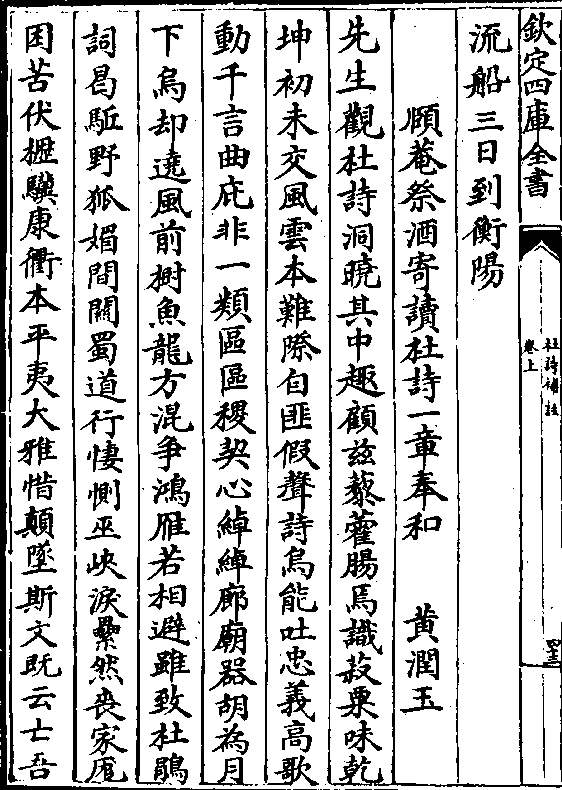 欽定四庫全書
杜詩
卷上
四十三
流船三日到衡陽
頤菴祭酒寄讀杜詩一章奉和　黃潤玉
先生觀杜詩洞曉其中趣顧兹藜藿腸焉識菽粟味乾
坤初未交風雲本難際自匪假聲詩烏能吐忠義高歌
動千言曲庇非一類區區稷契心綽綽廊廟器胡為月
下烏却遶風前樹魚龍方混爭鴻雁若相避雖致杜鵑
詞曷駈野狐媚間闗蜀道行悽惻巫峽淚纍然喪家厖
困苦伏櫪驥康衢本平夷大雅惜顛墜斯文既云士吾